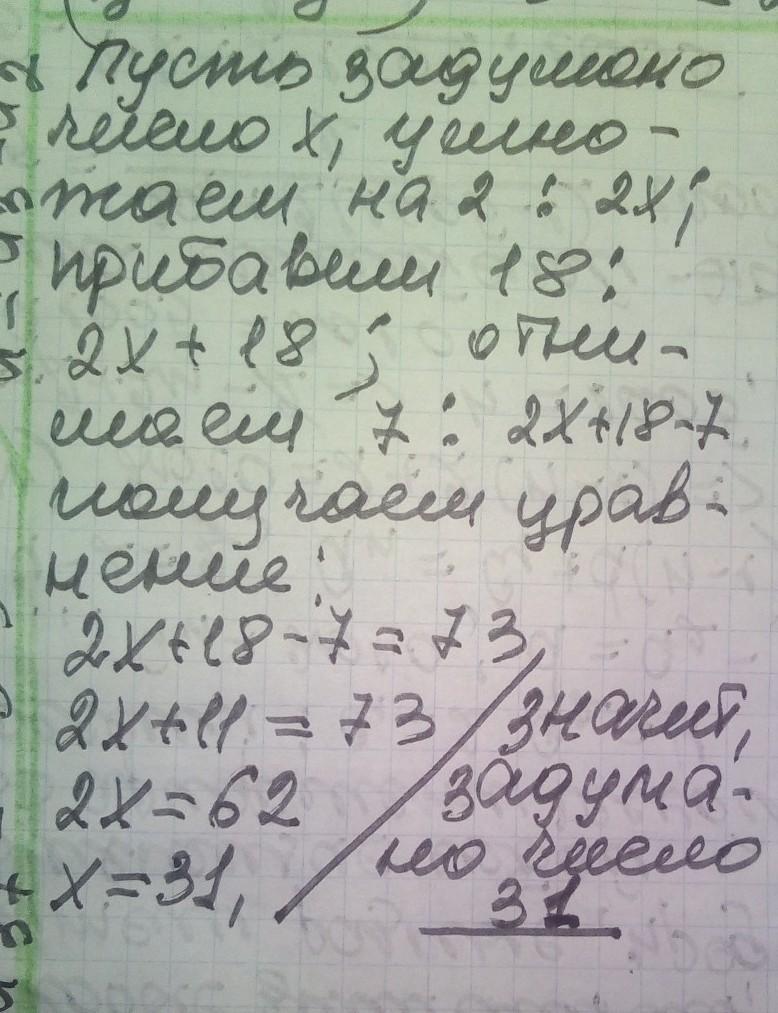 Пусть задумано
число x, умно-
жаем на 2 : 2x;
прибавили 18:
2x + 18 ; отни-
маем 7 : 2x+18-7
получаем урав-
нение:
2x+18-7=73
2x+11=73
2x=62
x=31,
значит,
задума-
но число
31